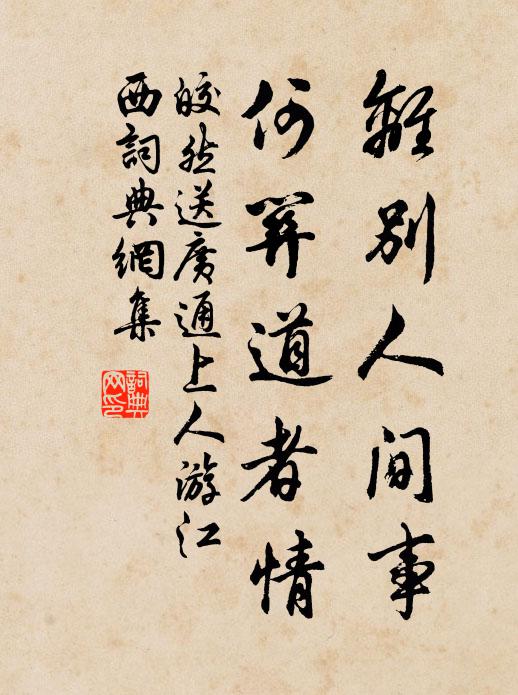 離別人間事
何關道者情
皎然送廣通上人游江
西詞典網集
詞典
网印